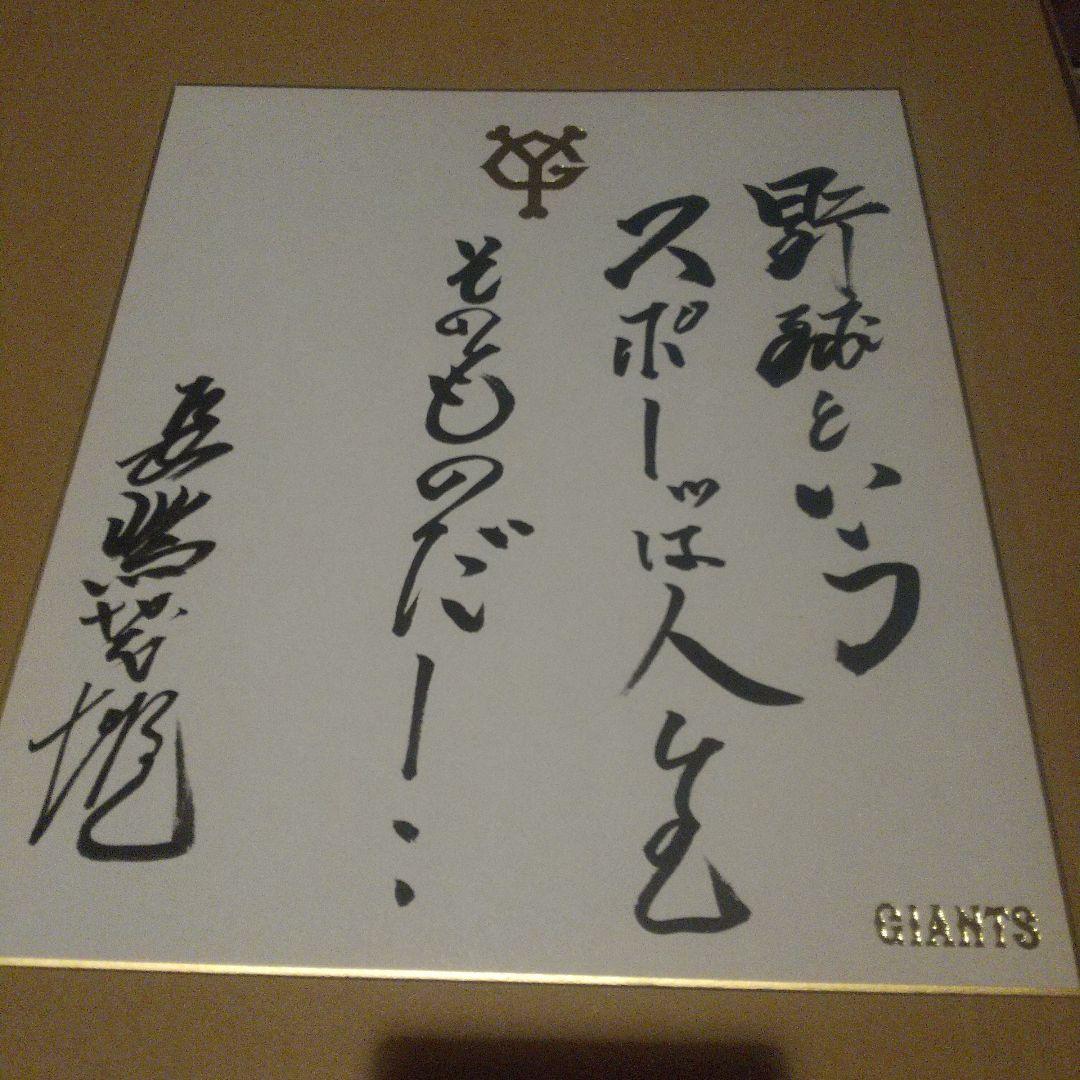 野球という
スポーツは人生
そのものだー：
長嶋茂雄
YG
GIANTS